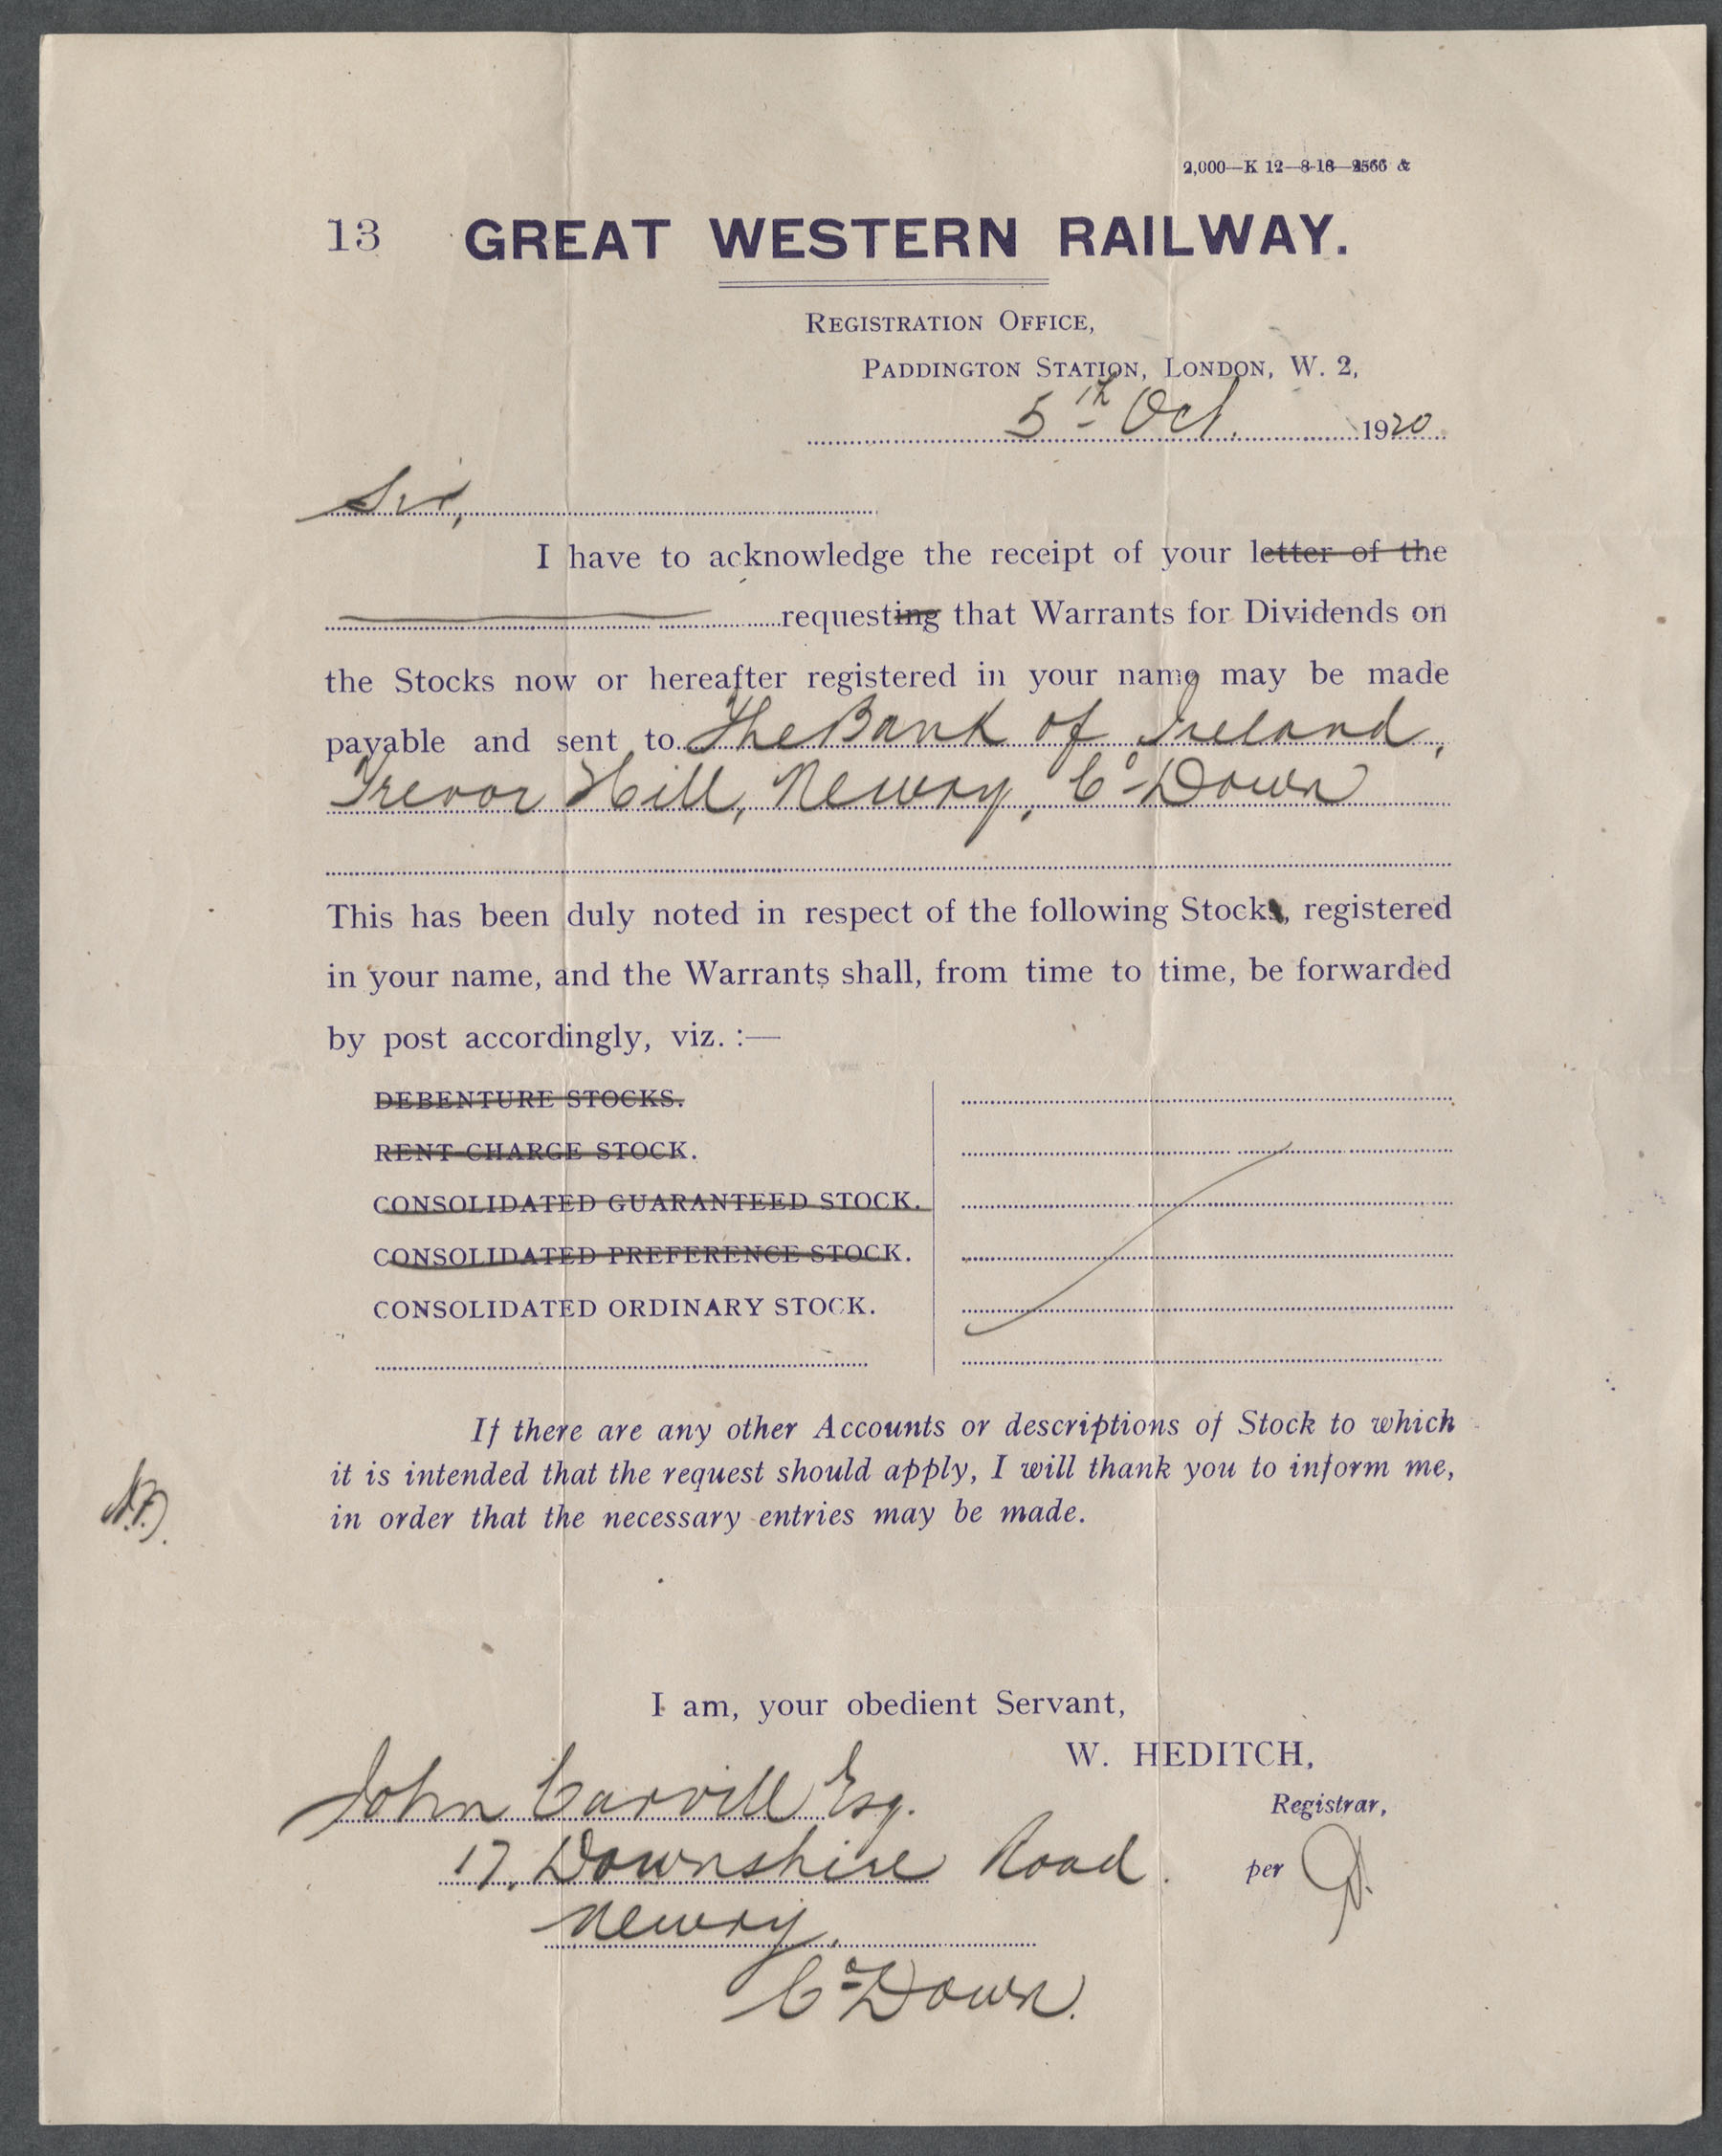 2,000—K 12—8-18—2566 &
13 GREAT WESTERN RAILWAY.
REGISTRATION OFFICE,
PADDINGTON STATION, LONDON, W. 2,
5th Oct. 1920
Sir,
I have to acknowledge the receipt of your letter of the
requesting that Warrants for Dividends on
the Stocks now or hereafter registered in your name may be made
payable and sent to The Bank of Ireland,
Trevor Hill, Newry, Co Down
This has been duly noted in respect of the following Stocks, registered
in your name, and the Warrants shall, from time to time, be forwarded
by post accordingly, viz. :—
DEBENTURE STOCKS.
RENT CHARGE STOCK.
CONSOLIDATED GUARANTEED STOCK.
CONSOLIDATED PREFERENCE STOCK.
CONSOLIDATED ORDINARY STOCK.
If there are any other Accounts or descriptions of Stock to which
it is intended that the request should apply, I will thank you to inform me,
in order that the necessary entries may be made.
I am, your obedient Servant,
W. HEDITCH,
Registrar,
per
John Carvill Esq.
17, Downshire Road.
Newry,
Co Down.